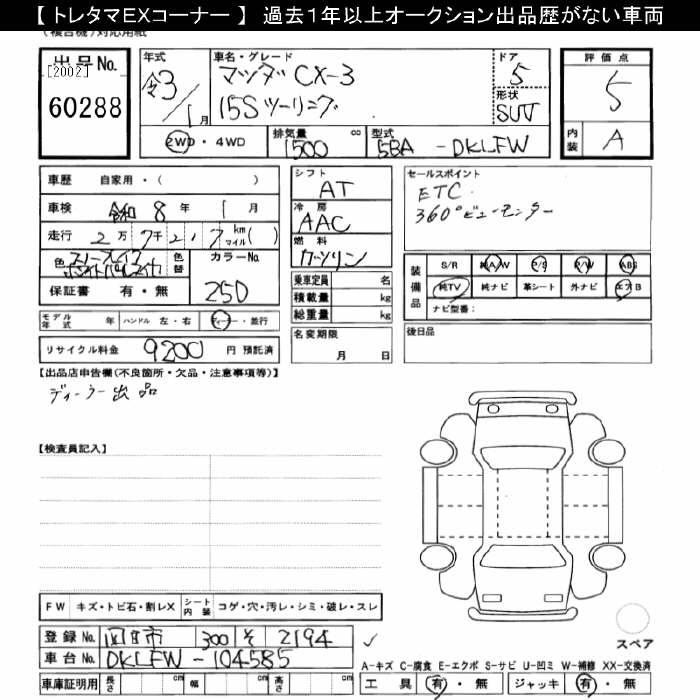 【 トレタマEXコーナー 】 過去１年以上オークション出品歴がない車両
(複合機)対応用紙
出品No. 年式 車名・グレード ドア 評価点
[2002] 令3 マツダ CX-3 5 5
60288 /1月 15S ツーリング 形状 SUV 内装 A
2WD・4WD 排気量 1500 cc 型式 5BA - DKLFW
車歴 自家用・( ) シフト AT セールスポイント
ETC
車検 令和 8年 1月 冷房 AAC 360°ビューモニター
走行 2万7千2 7 km マイル( ) 燃料 ガソリン
色 スノーフレイク ホワイトパールマイカ 色替 カラーNo. 25D
乗車定員 名 装備品 S/R 純A/W P/S P/W ABS
保証書 有・無 積載量 kg 純TV 純ナビ 革シート 外ナビ エアB
総重量 kg ナビ型番：
モデル年式 年 ハンドル 左・右 ディーラー・並行 名変期限 月 日 後日品
リサイクル料金 9200 円 預託済
【出品店申告欄(不良箇所・欠品・注意事項等)】
ディーラー出品
【検査員記入】
FW キズ・トビ石・割レX シート内装 コゲ・穴・汚レ・シミ・破レ・スレ
スペア
登録No. 四日市 300 そ 2194
車台No. DKLFW - 104585
A-キズ C-腐食 E-エクボ S-サビ U-凹ミ W-補修 XX-交換済
車庫証明用 長さ cm 幅 cm 高さ cm 工具 有・無 ジャッキ 有・無